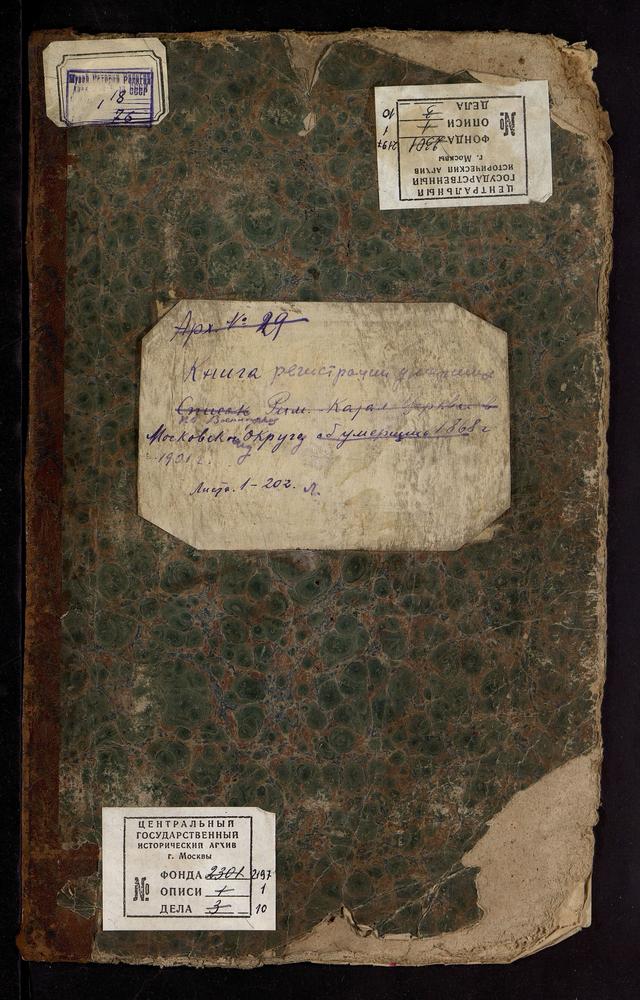 Музей Истории Религии
СССР
18
26
№
ФОНДА 2301 2197
ОПИСИ 1 1
ДЕЛА 3 10
ЦЕНТРАЛЬНЫЙ
ГОСУДАРСТВЕННЫЙ
ИСТОРИЧЕСКИЙ АРХИВ
г. Москвы
Арх № 29
Книга регистрации
Список Рим. Катол Церкви в
по Военному
Московском Округу об умерших 1868 г
1901 г.
Листа. 1-202. Л.
ЦЕНТРАЛЬНЫЙ
ГОСУДАРСТВЕННЫЙ
ИСТОРИЧЕСКИЙ АРХИВ
г. Москвы
№
ФОНДА 2301 2197
ОПИСИ 1 1
ДЕЛА 3 10